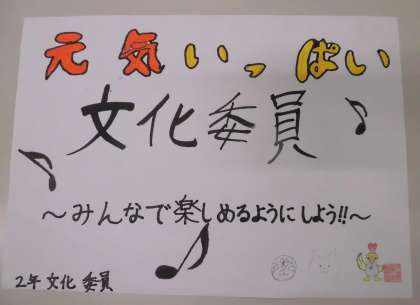 元気いっぱい
文化委員
～みんなで楽しめるようにしよう!!～
2年 文化 委員